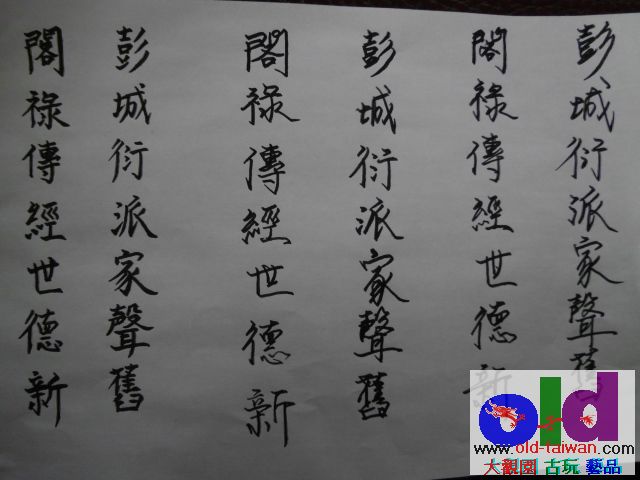 彭城衍派家聲舊
閣祿傳經世德新
彭城衍派家聲舊
閣祿傳經世德新
彭城衍派家聲舊
閣祿傳經世德新
old
www.old-taiwan.com
大觀園 古玩 藝品